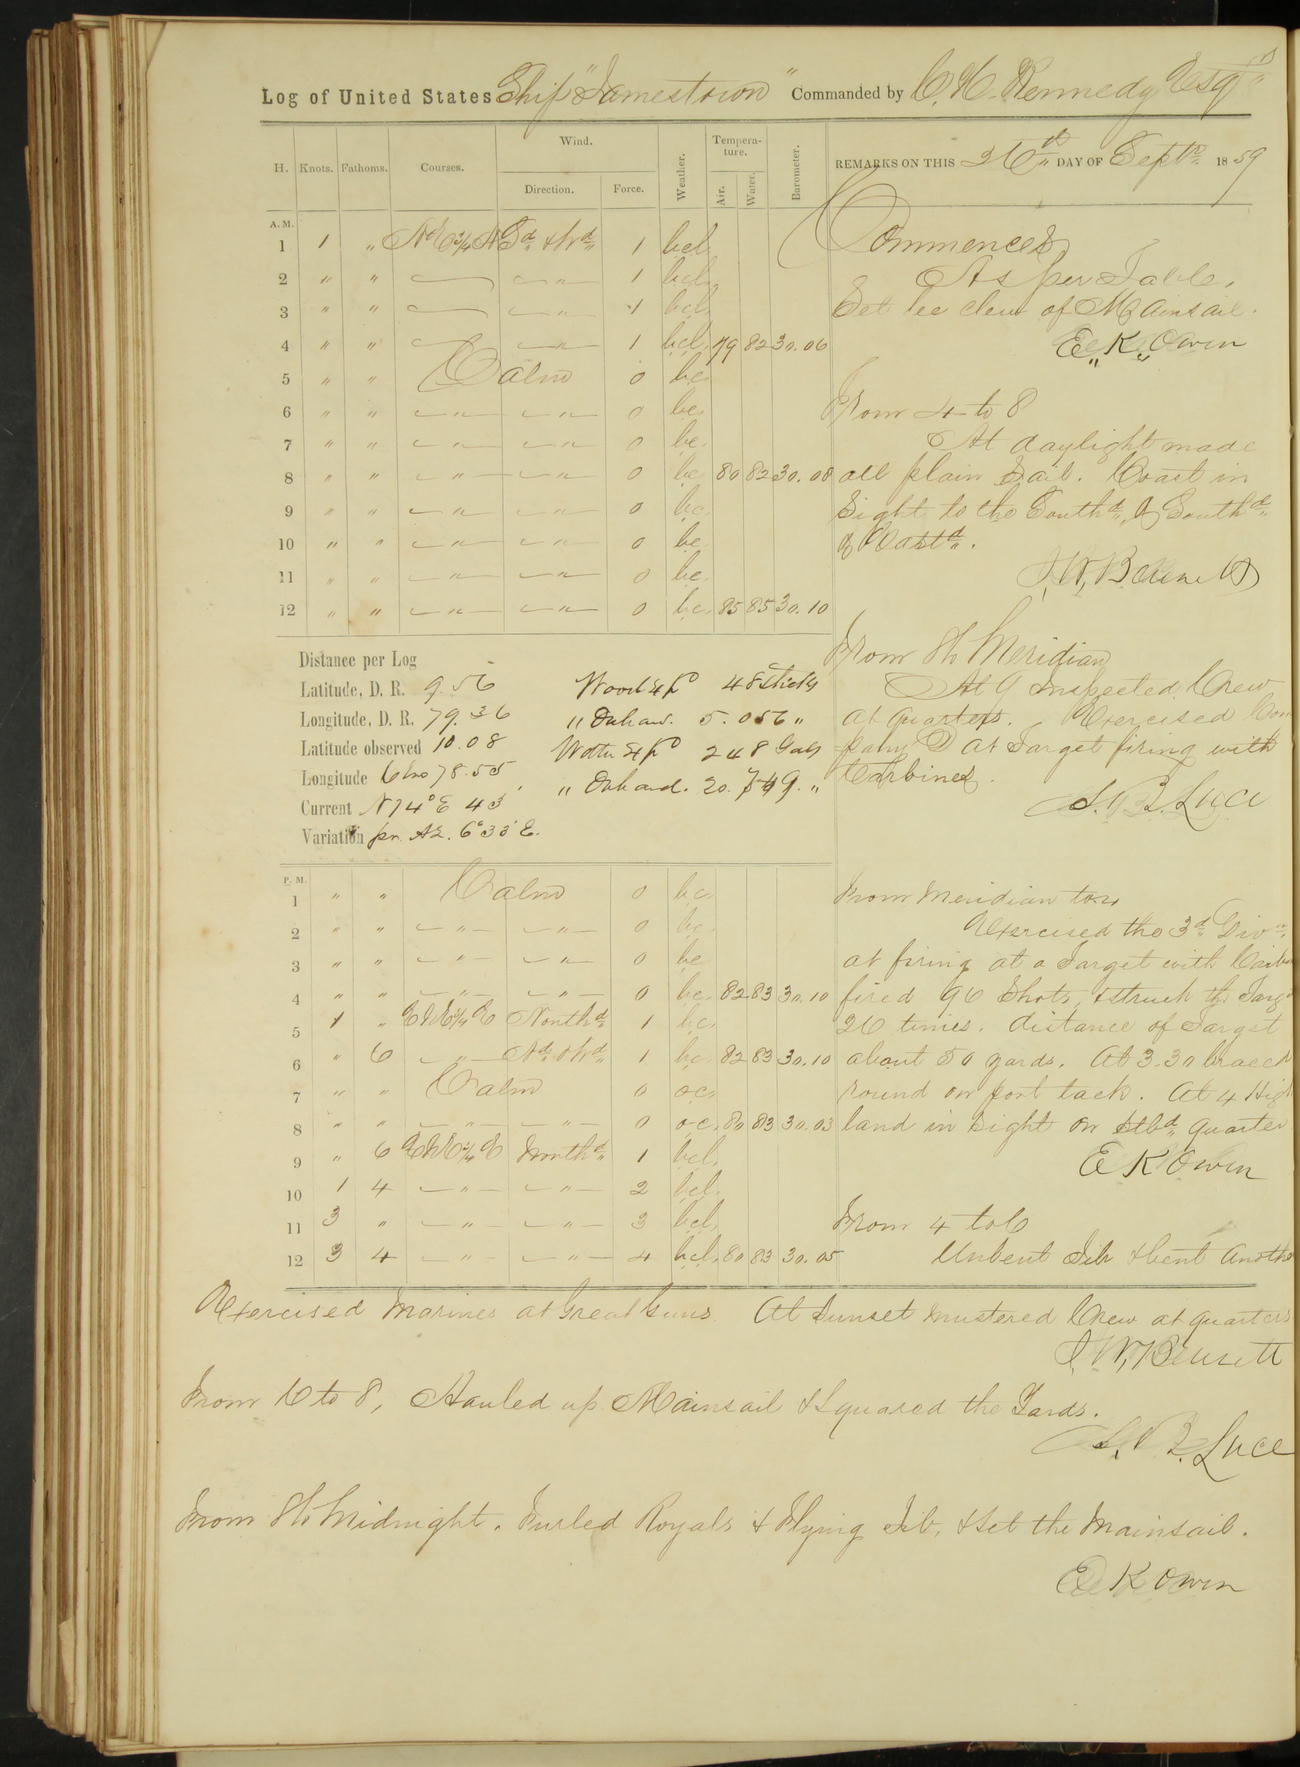 Log of United States Ship "Jamestown" Commanded by C. H. Kennedy Esqr
H. Knots. Fathoms. Courses. Wind. Direction. Force. Weather. Temperature. Air. Water. Barometer.
REMARKS ON THIS 26th DAY OF Septr 1859
A. M.
1 1 " 1 bcl
2 " " " 1 bcl
3 " " " 1 bcl
4 " " " 1 bcl 79 82 30.06
5 " " Calm 0 bc
6 " " " " 0 bc
7 " " " " 0 bc
8 " " " " 0 bc 80 82 30.08
9 " " " " 0 bc
10 " " " " 0 bc
11 " " " " 0 bc
12 " " " " 0 bc 85 85 30.10
Commences
As per Table.
Set lee clew of Mainsail.
E. K. Owen
From 4 to 8
At daylight made
all plain Sail. Coast in
Sight to the Southd, & Southd
& Eastd.
J. W. Bennett
From 8 to Meridian
At 9 inspected Crew
at quarters. Exercised Com
pany D at Target firing with
Carbines.
S. B. Luce
Distance per Log
Latitude, D. R. 9.56
Longitude, D. R. 79.36
Latitude observed 10.08
Longitude Chro 78.55
Current N74°E 43
Variation pr. Az. 6°33'E.
Wood Exp 48 sticks
" On hand. 5.056 "
Water Exp 248 Gals
" On hand. 20. "
P. M.
1 " " Calm 0 bc
2 " " " " 0 bc
3 " " " " 0 bc
4 " " " " 0 bc 82 83 30.10
5 1 " Northd 1 bc
6 " 6 " Nd & Wd 1 bc 82 83 30.10
7 " " Calm 0 oc
8 " " " " 0 oc 80 83 30.03
9 " 6 Northd 1 bcl
10 1 4 " " 2 bcl
11 3 " " " 3 bcl
12 3 4 " " 4 bcl 80 83 30.05
From Meridian to 4
Exercised the 3d Divn
at firing at a Target with
fired 96 Shots, & struck the Targ
26 times. distance of Target
about 50 yards. At 3.30 braced
round on port tack. At 4 High
land in Sight on Stbd quarter
E K Owen
From 4 to 6
Unbent Jib & bent Another
Exercised Marines at Great Guns. At Sunset mustered Crew at quarters
J. W. Bennett
From 6 to 8, Hauled up Mainsail & Squared the Yards.
S. B. Luce
From 8 to Midnight. Furled Royals & Flying Jib, & Set the Mainsail.
E K Owen